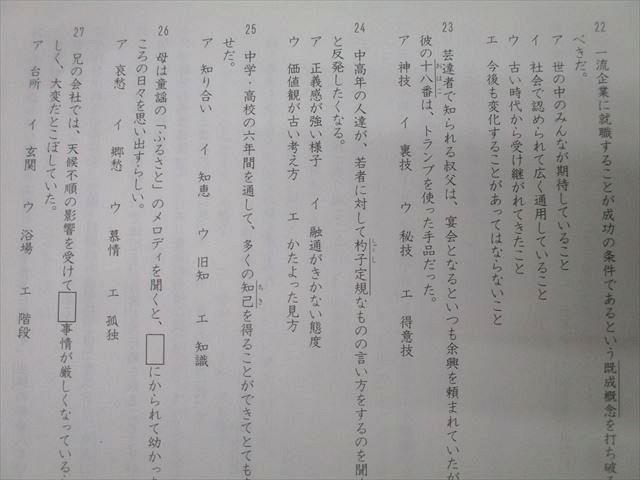 22 一流企業に就職することが成功の条件であるという既成概念を打ち破る
べきだ。
ア 世の中のみんなが期待していること
イ 社会で認められて広く通用していること
ウ 古い時代から受け継がれてきたこと
エ 今後も変化することがあってはならないこと
23 芸達者で知られる叔父は、宴会となるといつも余興を頼まれていたが
彼の十八番は、トランプを使った手品だった。
おはこ
ア 神技 イ 裏技 ウ 秘技 エ 得意技
24 中高年の人達が、若者に対して杓子定規なものの言い方をするのを聞
しゃくし
と反発したくなる。
ア 正義感が強い様子 イ 融通がきかない態度
ウ 価値観が古い考え方 エ かたよった見方
25 中学・高校の六年間を通して、多くの知己を得ることができてとても
ちき
せだ。
ア 知り合い イ 知恵 ウ 旧知 エ 知識
26 母は童謡の「ふるさと」のメロディを聞くと、□にかられて幼かっ
ころの日々を思い出すらしい。
ア 哀愁 イ 郷愁 ウ 慕情 エ 孤独
27 兄の会社では、天候不順の影響を受けて□事情が厳しくなっている
しく、大変だとこぼしていた。
ア 台所 イ 玄関 ウ 浴場 エ 階段